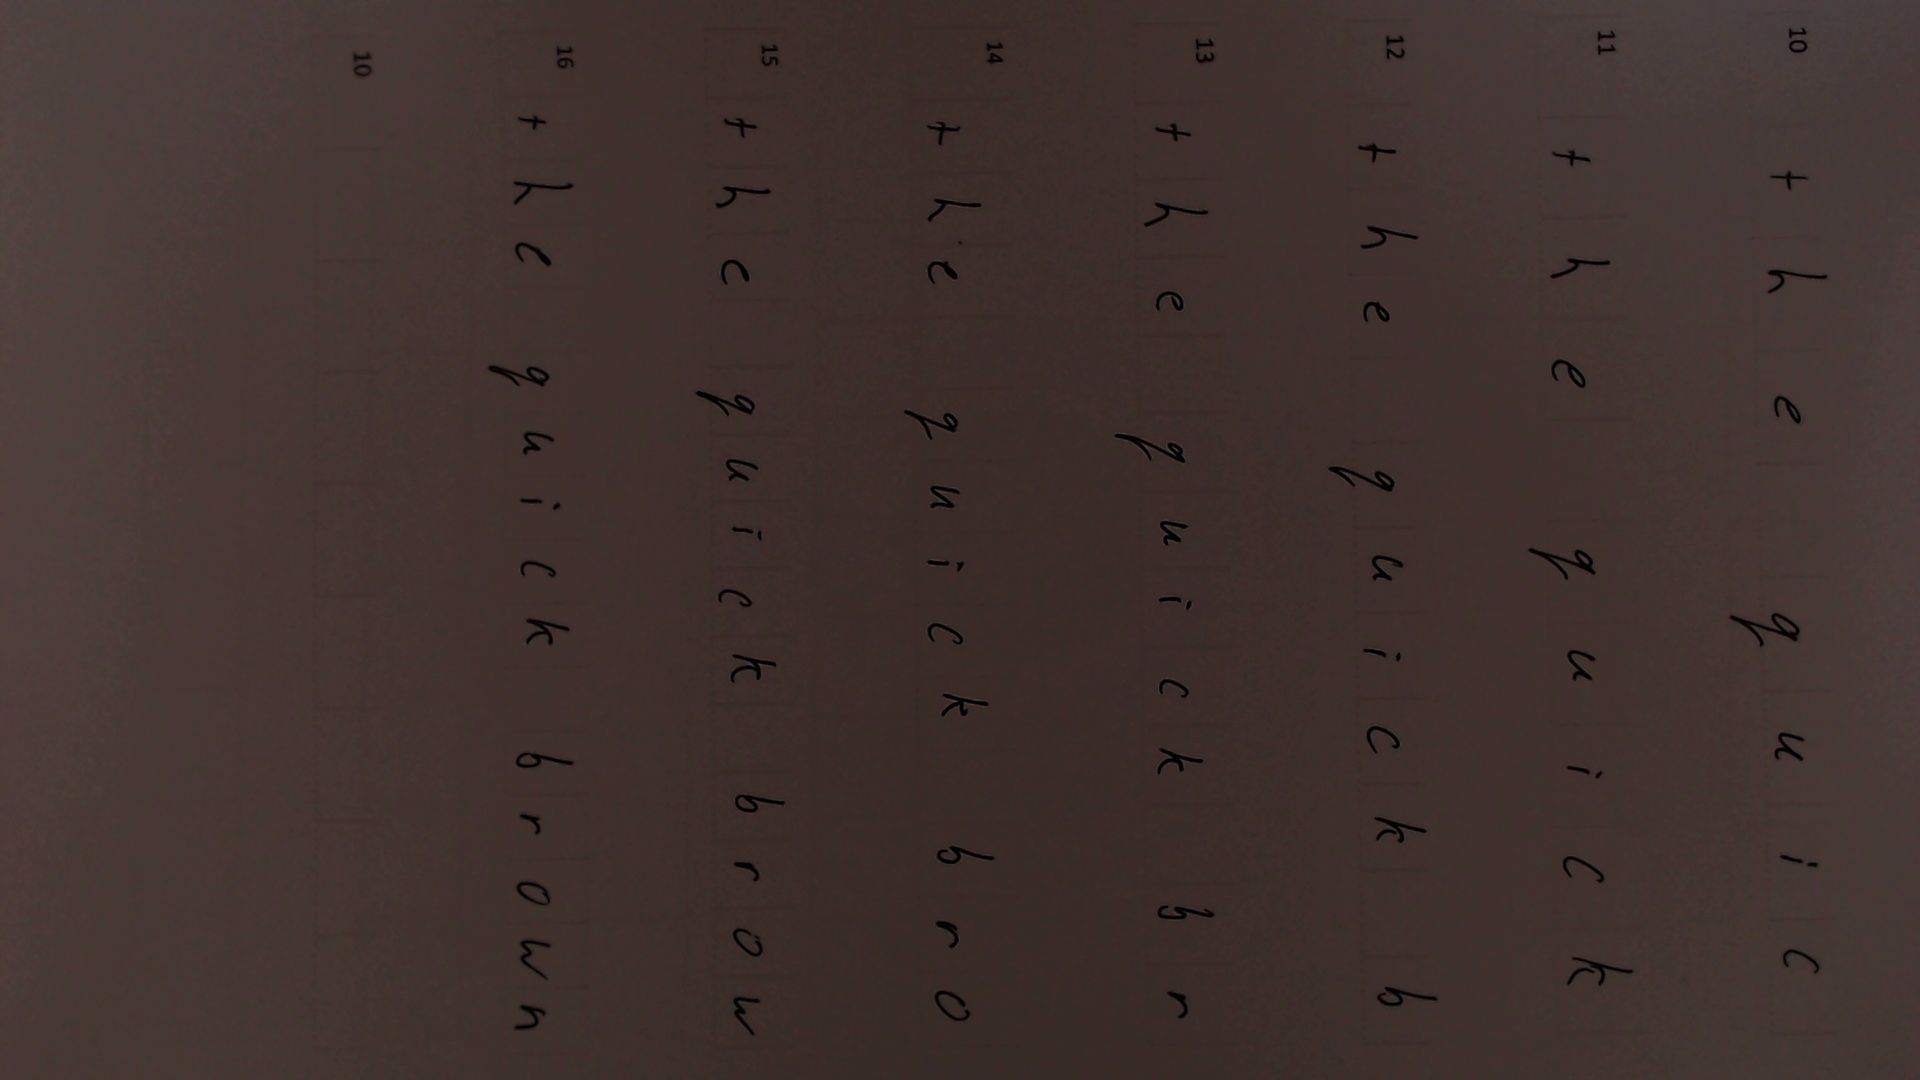 10 the quic
11 the quick
12 the quick b
13 the quick br
14 the quick bro
15 the quick brow
16 the quick brown
10